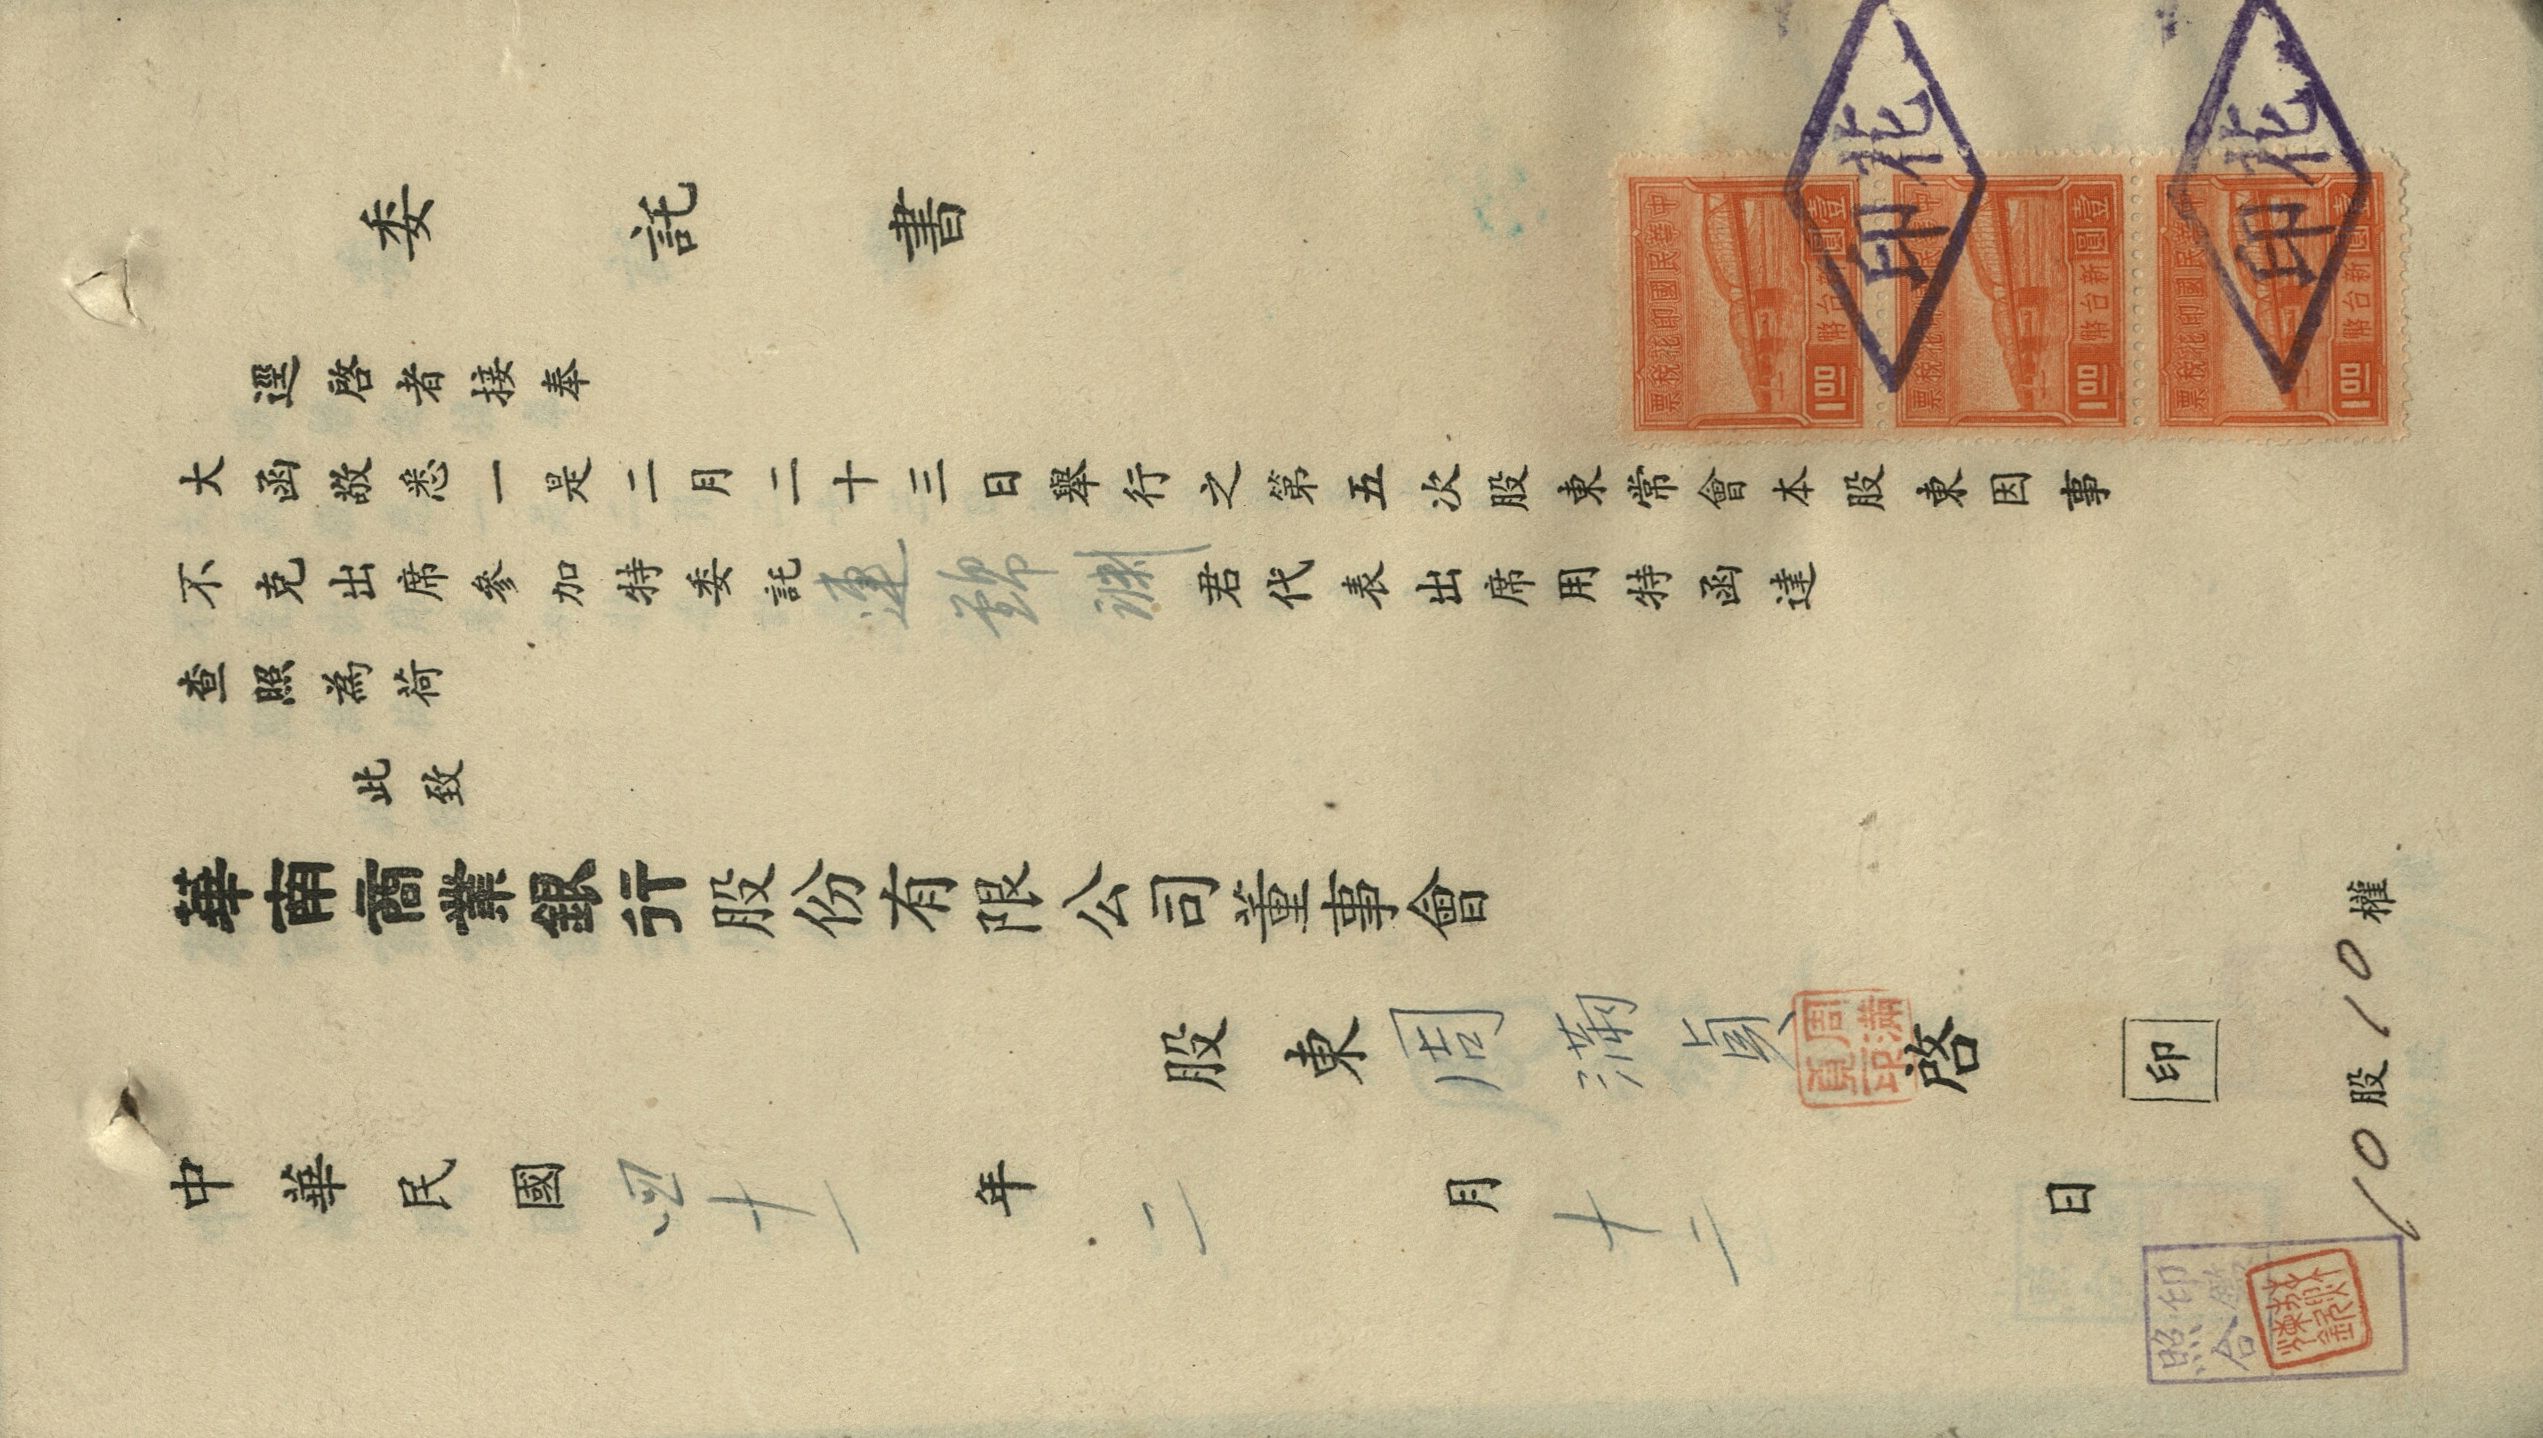 委託書
逕啓者接奉
大函敬悉一是二月二十三日舉行之第五次股東常會本股東因事
不克出席參加特委託連錦淵君代表出席用特函達
查照為荷
此致
華南商業銀行股份有限公司董事會
股東周滿真啓
周滿
真印
印
中華民國四十一年二月十二日
10股10權
中華民國印花稅票
新台幣壹圓
1.00
中華民國印花稅票
新台幣壹圓
1.00
中華民國印花稅票
新台幣壹圓
1.00
印花
印花
印鑑
照合